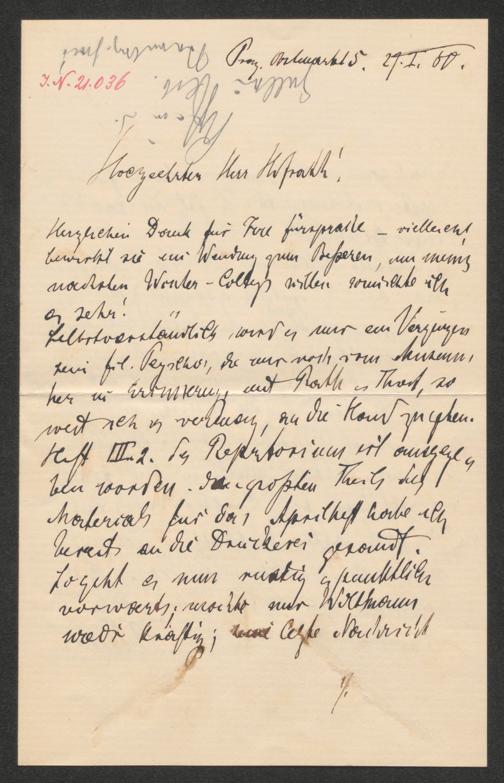 I.N. 21.036
Prag, Obstmarkt 5. 29. I. 80.
Hochgeehrter Herr Hofrath!
Herzlichen Dank für Ihre Fürsprache – vielleicht
bewirkt sie eine Wendung zum Besseren, um meines
nächsten Winter-Collegs willen wünschte ich
es sehr!
Selbstverständlich wird es mir ein Vergnügen
sein, frl. , die mir noch vom Museum
her in Erinnerung, mit Rath u. That, so
weit ich es vermag, an die Hand zu gehen.
Heft III.2. des Repertorium ist ausgege
ben worden. Den größten Theil des
Materials für das Aprilheft habe ich
bereits an die Druckerei gesandt.
So geht es nun rüstig u. pünktlich
vorwärts; möchte nur Woltmann
wieder kräftig; letzte Nachricht